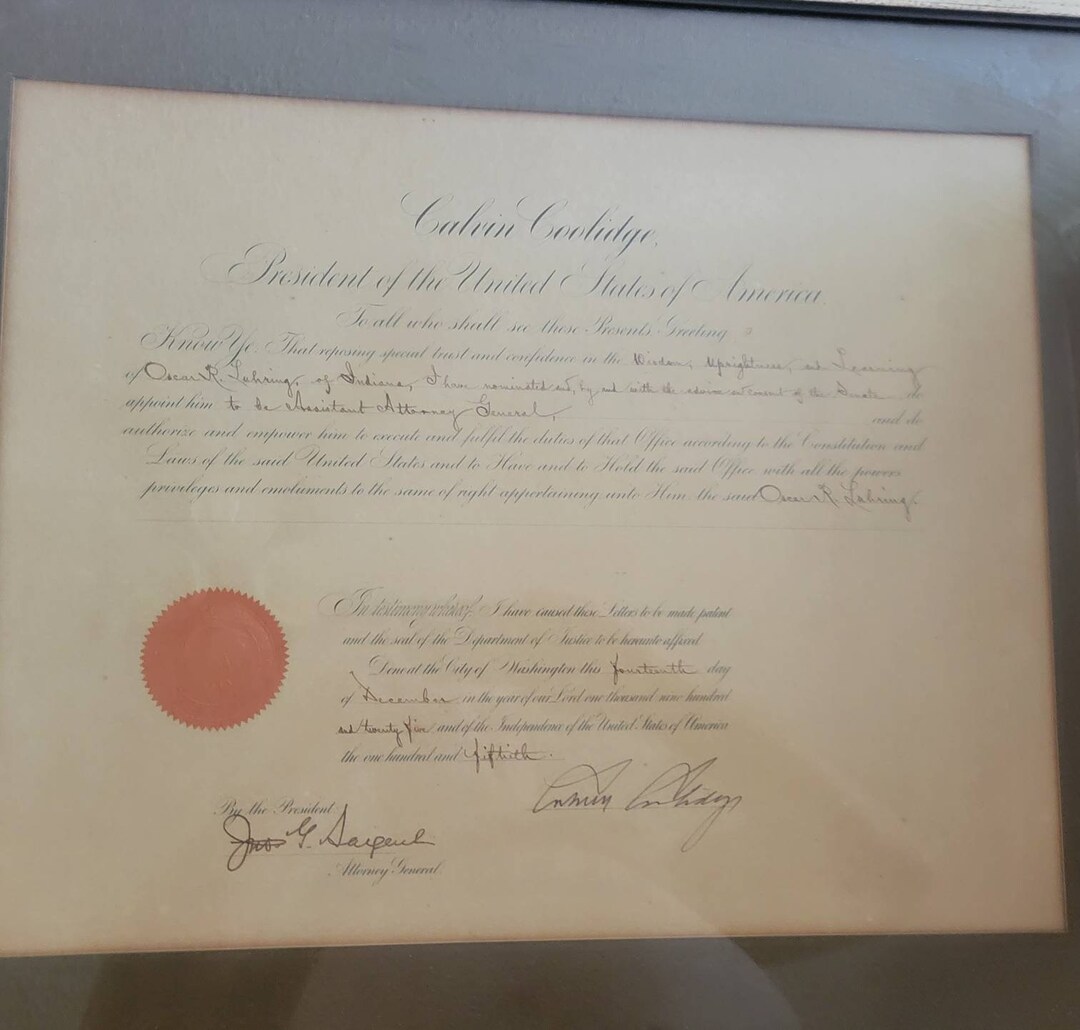 Calvin Coolidge,
President of the United States of America.
To all who shall see these Presents Greeting:
Know Ye: That reposing special trust and confidence in the Wisdom, Uprightness, and Learning
of Oscar R. Luhring, of Indiana, I have nominated and, by and with the advice and consent of the Senate do
appoint him to be Assistant Attorney General, and do
authorize and empower him to execute and fulfil the duties of that Office according to the Constitution and
Laws of the said United States and to Have and to Hold the said Office with all the powers
privileges and emoluments to the same of right appertaining unto Him the said Oscar R. Luhring.
In testimony whereof, I have caused these Letters to be made patent
and the seal of the Department of Justice to be hereunto affixed
Done at the City of Washington this fourteenth day
of December in the year of our Lord one thousand nine hundred
and twenty five and of the Independence of the United States of America
the one hundred and fiftieth.
Calvin Coolidge
By the President:
Jno G. Sargent
Attorney General.